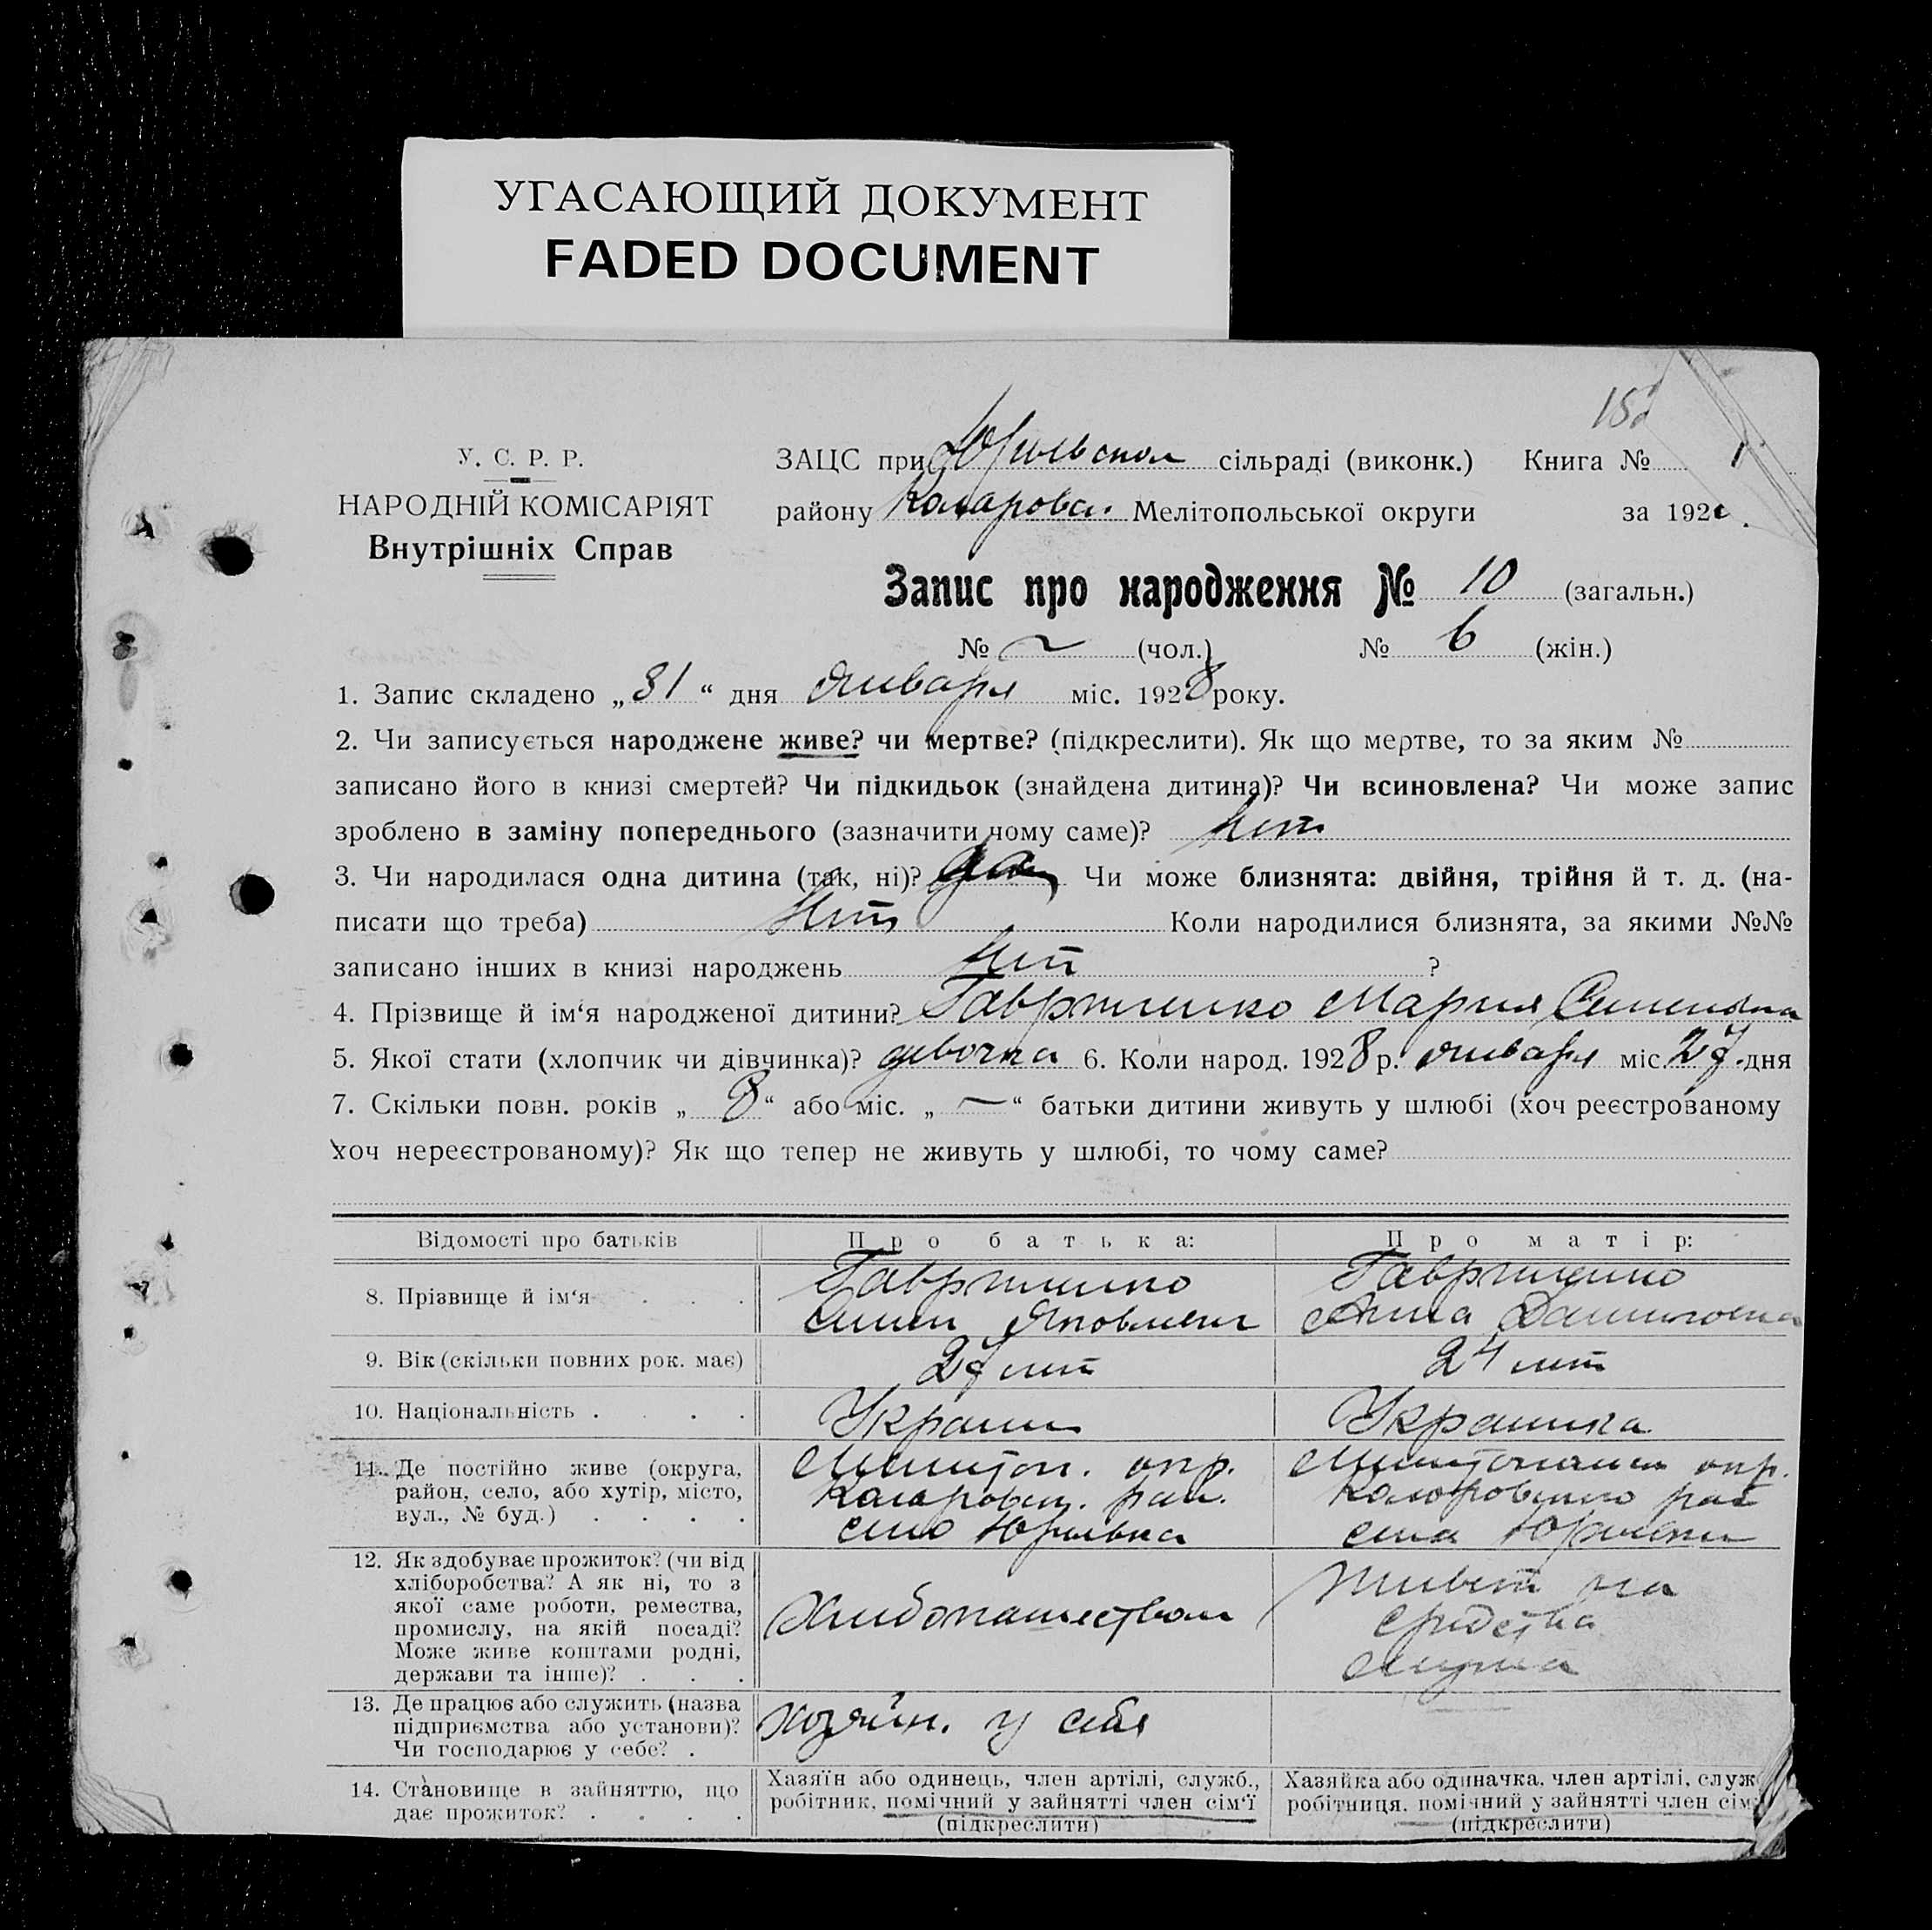 УГАСАЮЩИЙ ДОКУМЕНТ
FADED DOCUMENT
У. С. Р. Р.
НАРОДНІЙ КОМІСАРІЯТ
Внутрішніх Справ
ЗАЦС при сільраді (виконк.) Книга № 1
району Коларовск. Мелітопольської округи за 192
Запис про народження № 10 (загальн.)
№ — (чол.) № 6 (жін.)
1. Запис складено „31“ дня января міс. 1928 року.
2. Чи записується народжене живе? чи мертве? (підкреслити). Як що мертве, то за яким №
записано його в книзі смертей? Чи підкидьок (знайдена дитина)? Чи всиновлена? Чи може запис
зроблено в заміну попереднього (зазначити чому саме)? нет
3. Чи народилася одна дитина (так, ні)? да Чи може близнята: двійня, трійня й т. д. (на-
писати що треба) нет Коли народилися близнята, за якими №№
записано інших в книзі народжень нет ?
4. Прізвище й ім‘я народженої дитини? Мария Семеновна
5. Якої стати (хлопчик чи дівчинка)? девочка 6. Коли народ. 1928 р. января міс. 27 дня
7. Скільки повн. років „8“ або міс. „—“ батьки дитини живуть у шлюбі (хоч реєстрованому
хоч нереєстрованому)? Як що тепер не живуть у шлюбі, то чому саме?
Відомості про батьків Про батька: Про матір:
8. Прізвище й ім‘я . . .
Семен Яковлевич
Анна Даниловна
9. Вік (скільки повних рок. має) 27 лет 24 лет
10. Національність . . . . Украин Украинка
11. Де постійно живе (округа,
район, село, або хутір, місто,
вул., № буд.) . . . .
Мелитоп. окр.
Коларовск. рай.
село Юрьевка
окр.
Коларовского рай
села Юрьевки
12. Як здобуває прожиток? (чи від
хліборобства? А як ні, то з
якої саме роботи, ремества,
промислу, на якій посаді?
Може живе коштами родні,
держави та інше)? . . .
Хлебопашеством
живет на
средства
мужа
13. Де працює або служить (назва
підприємства або установи)?
Чи господарює у себе? .
хозяйн. у себя
14. Становище в зайняттю, що
дає прожиток? . . . .
Хазяїн або одинець, член артілі, служб.,
робітник, помічний у зайнятті член сім‘ї
(підкреслити)
Хазяйка або одиначка, член артілі, служ
робітниця, помічний у зайнятті член сім
(підкреслити)